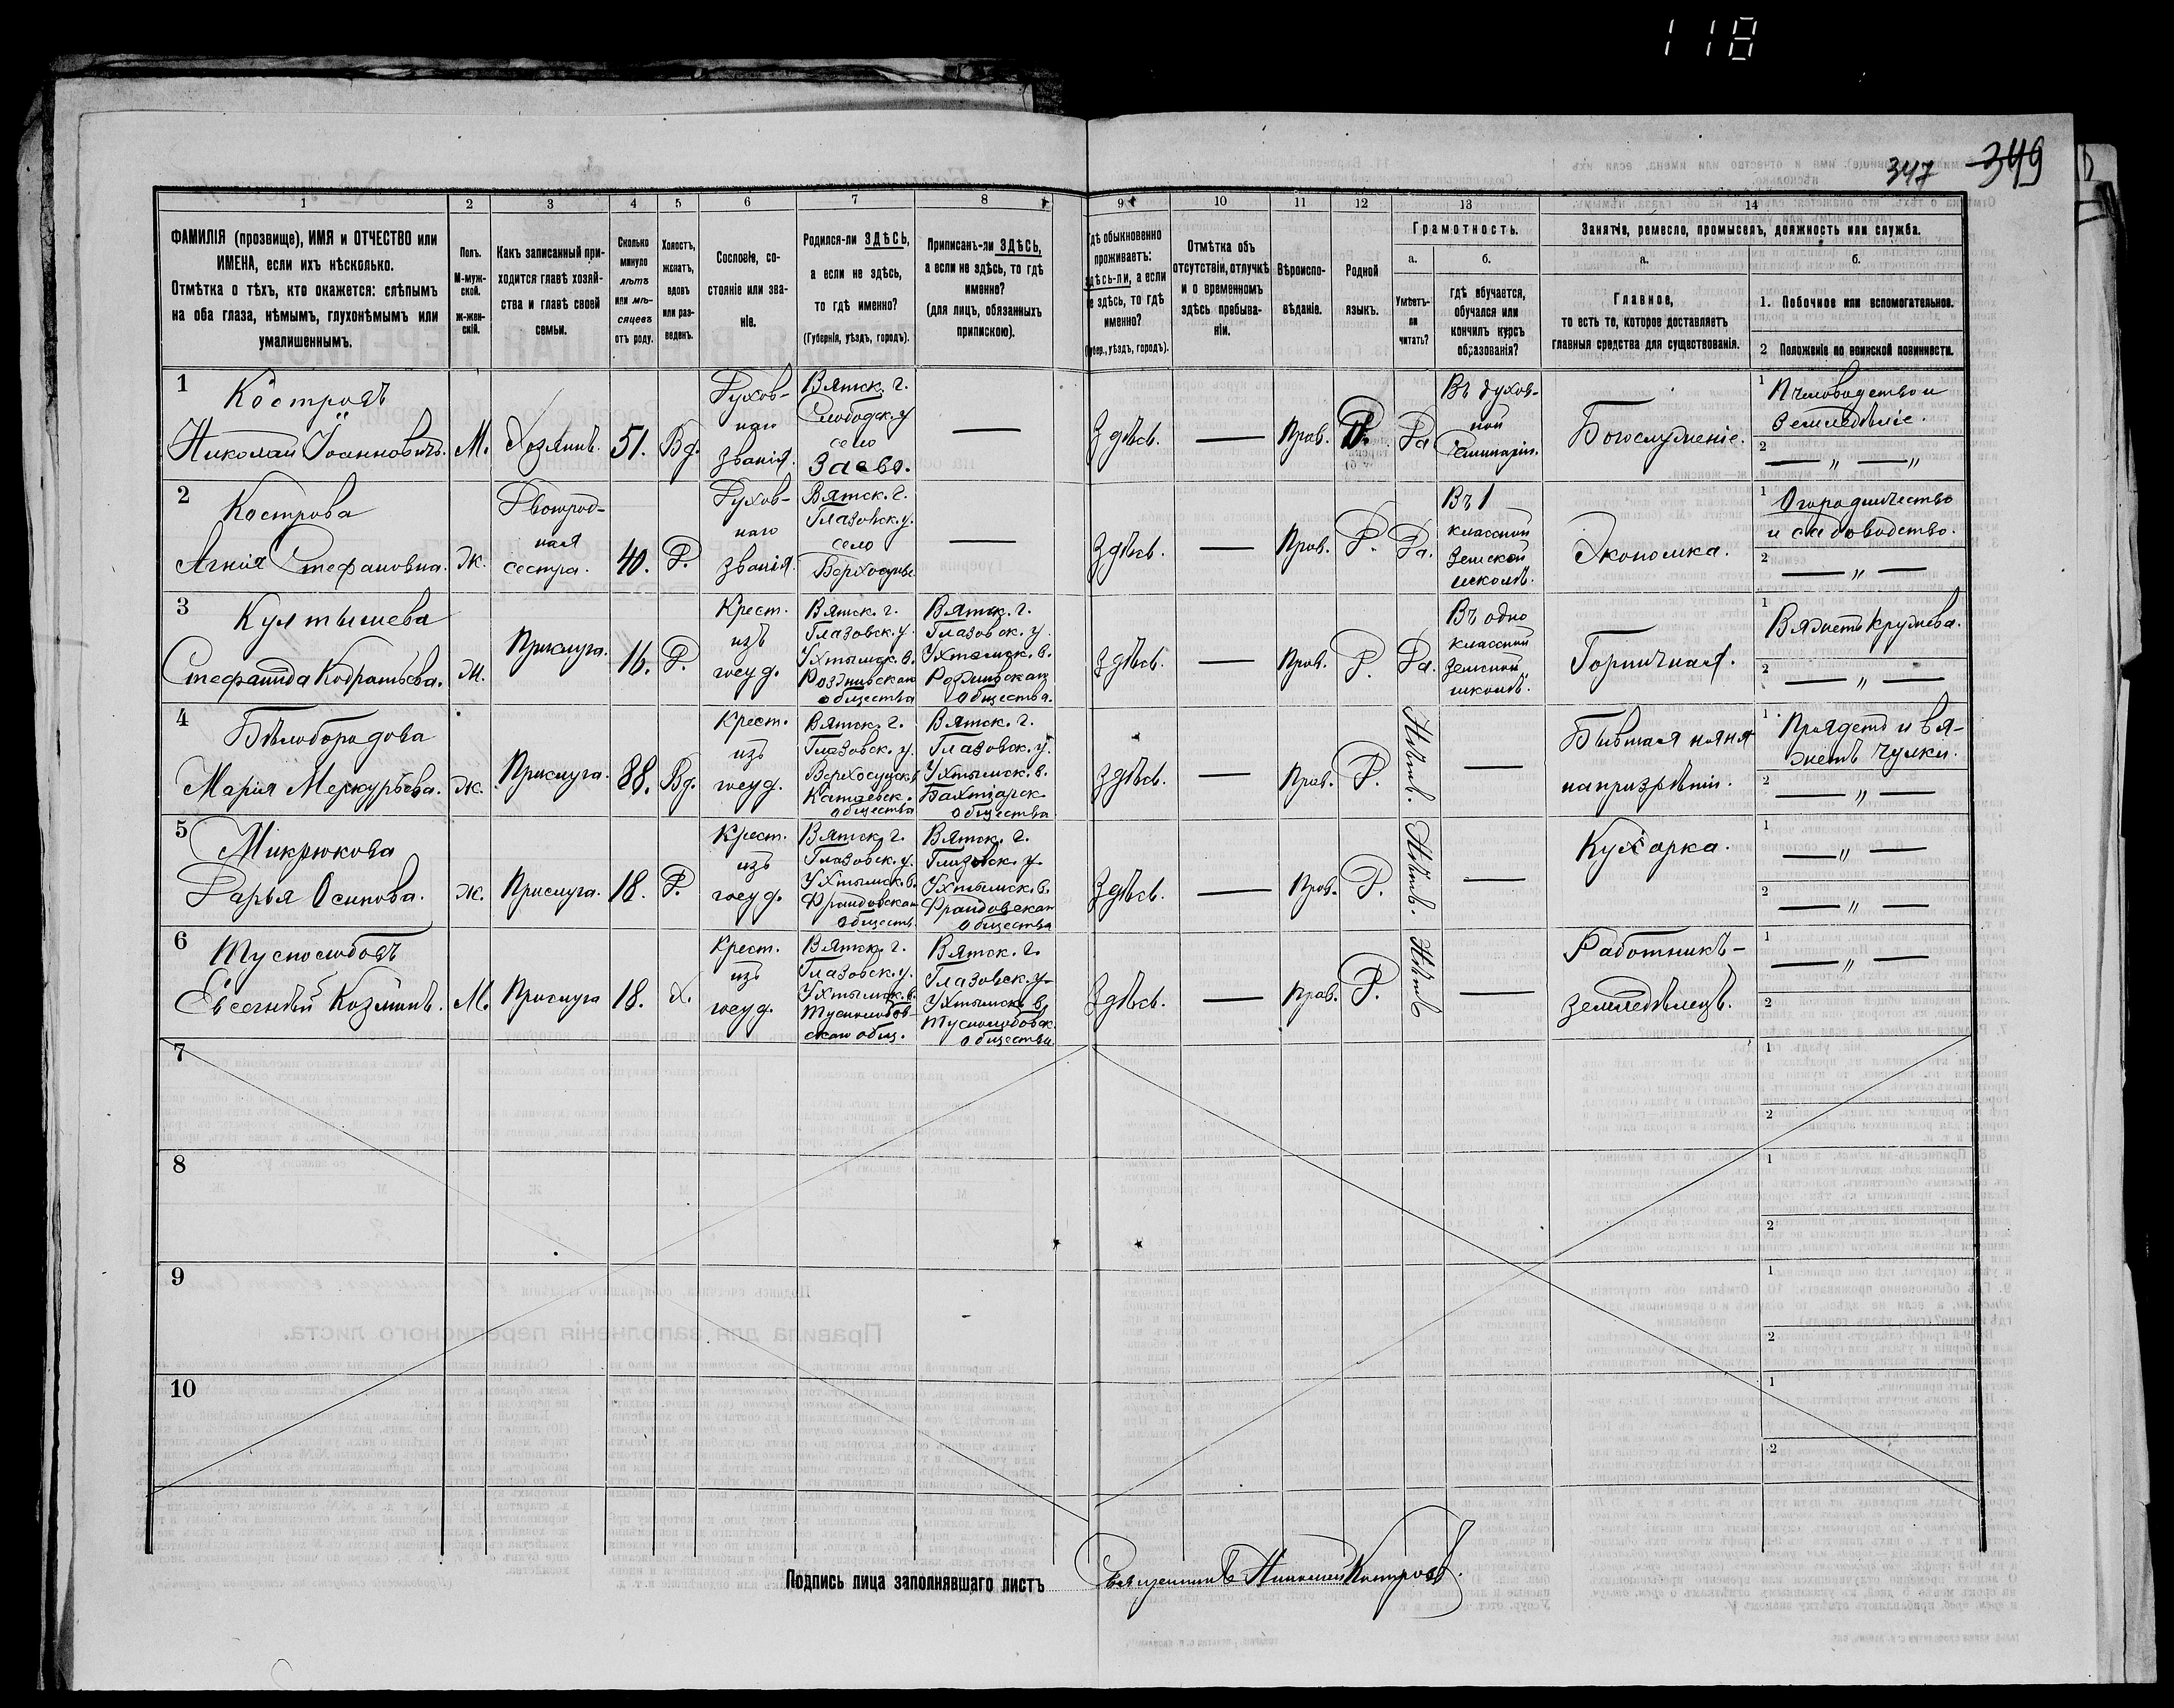 118
347 349
1 2 3 4 5 6 7 8 9 10 11 12 13 14
ФАМИЛІЯ (прозвище), ИМЯ и ОТЧЕСТВО или
ИМЕНА, если ихъ нѣсколько.
Отмѣтка о тѣхъ, кто окажется: слѣпымъ
на оба глаза, нѣмымъ, глухонѣмымъ или
умалишеннымъ.
Полъ.
М-муж-
ской.
ж-жен-
скій.
Какъ записанный при-
ходится главѣ хозяй-
ства и главѣ своей
семьи.
Сколько
минуло
лѣтъ
или мѣ-
сяцевъ
отъ роду.
Холостъ,
женатъ,
вдовъ
или раз-
веденъ.
Сословіе, со-
стояніе или зва-
ніе.
Родился-ли ЗДѢСЬ,
а если не здѣсь,
то гдѣ именно?
(Губернія, уѣздъ, городъ).
Приписанъ-ли ЗДѢСЬ,
а если не здѣсь, то гдѣ
именно?
(для лицъ, обязанныхъ
припискою).
гдѣ обыкновенно
проживаетъ:
здѣсь-ли, а если
не здѣсь, то гдѣ
именно?
(губер., уѣздъ, городъ).
Отмѣтка объ
отсутствіи, отлучкѣ
и о временномъ
здѣсь пребыва-
ніи.
Вѣроиспо-
вѣданіе.
Родной
языкъ.
Грамотность.
а.
Умѣетъ-
ли
читать?
б.
гдѣ обучается,
обучался или
кончилъ курсъ
образованія?
Занятіе, ремесло, промыселъ, должность или служба.
а.
Главное,
то есть то, которое доставляетъ
главныя средства для существованія.
б.
1. Побочное или вспомогательное.
2 Положеніе по воинской повинности.
1
Костровъ
Николай Іоанновичъ.
М.
Хозяинъ.
51.
Вд.
Духов-
наго
званія.
Вятск. г.
Слободск. у
село
Заево.
—
Здѣсь.
—
Прав.
Р.
Да
Въ духов-
ной
Семинаріи.
Богослуженіе.
1 Пчеловодство и
земледѣліе.
2 — „ — „
2
Кострова
Агнія Стефановна.
Ж.
Двоюрод-
ная
сестра.
40.
Д.
Духов-
наго
званія.
Вятск. г.
Глазовск. у.
село
Верхосунье
—
Здѣсь.
—
Прав.
Р.
Да.
Въ 1
классной
Земской
школѣ.
Экономка.
1 Огородничество
и садоводство.
2 — „ —
3
Култышева
Стефанида Кодратьева.
Ж.
Прислуга.
16.
Д.
Крест.
изъ
госуд.
Вятск. г.
Глазовск. у.
Ухтымск. в.
общества
Вятск. г.
Глазовск. у.
Ухтымск. в.
общества.
Здѣсь.
—
Прав.
Р.
Да.
Въ одно
классной
Земской
школѣ.
Горничная.
1 Вяжетъ кружева.
2 — „ —
4
Бѣлобородова
Марія Меркурьева.
Ж.
Прислуга.
88.
Вд.
Крест.
изъ
госуд.
Вятск. г.
Глазовск. у.
Верхосунск.
Катаевск.
общества
Вятск. г.
Глазовск. у.
Ухтымск. в.
Бахтіарск.
общества
Здѣсь.
—
Прав.
Р.
Нѣтъ.
—
Бывшая няня
на призрѣніи.
1 Прядетъ и вя-
жетъ чулки.
2 — „ —
5
Микрюкова
Дарья Осипова.
Ж.
Прислуга.
18.
Д.
Крест.
изъ
госуд.
Вятск. г.
Глазовск. у.
Ухтымск. в.
обществ.
Вятск. г.
Глазовск. у.
Ухтымск. в.
общества
Здѣсь.
—
Прав.
Р.
Нѣтъ.
—
Кухарка.
1 — „ —
2 — „ —
6
Туснолобовъ
Евсегнѣй Козминъ.
М.
Прислуга
18.
Х.
Крест.
изъ
госуд.
Вятск. г.
Глазовск. у.
Ухтымск. в.
Туснолобов-
скаго общ.
Вятск. г.
Глазовск. у.
Ухтымск. в.
Туснолобовск.
общества
Здѣсь.
—
Прав.
Р.
Нѣтъ
—
Работникъ-
земледѣлецъ.
1 — „ —
2
7
1
2
8
1
2
9
1
2
10
1
2
Подпись лица заполнявшаго листъ Священникъ Николай Костровъ.